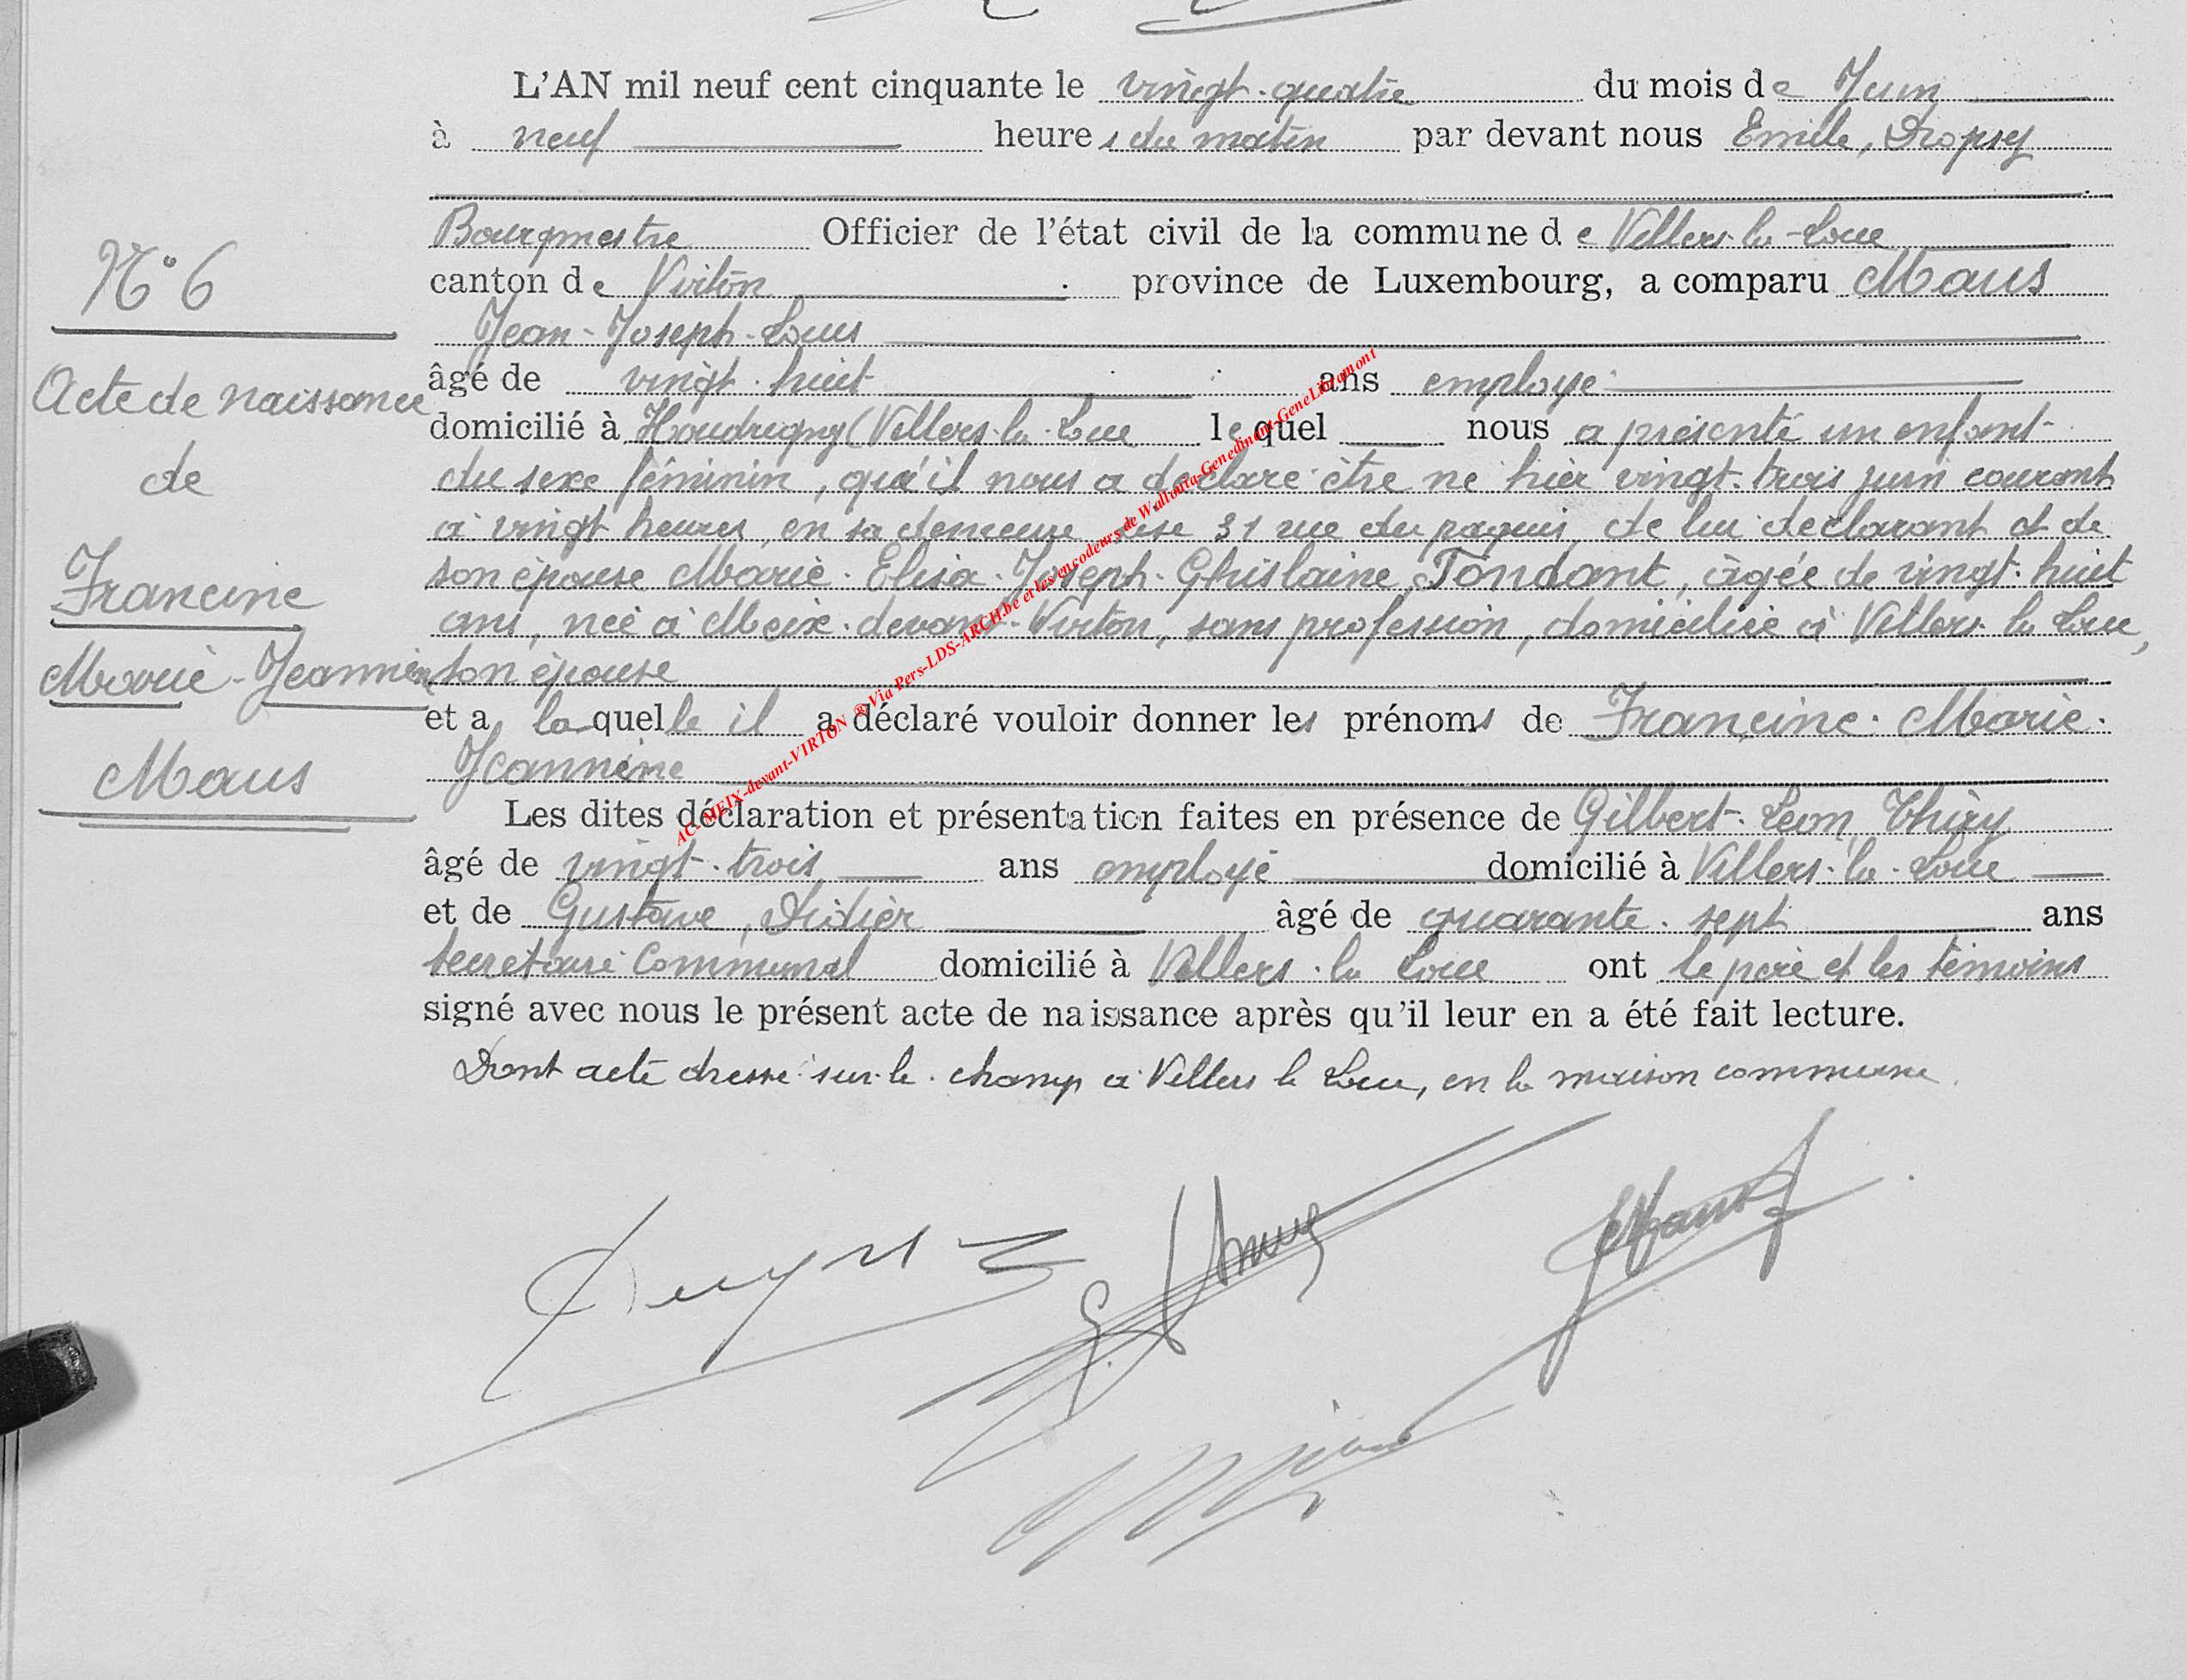 L'AN mil neuf cent cinquante le vingt-quatre du mois de Juin
à neuf heures du matin par devant nous Emile, Dropsy
Bourgmestre Officier de l'état civil de la commune de Villers-la-Loue
N° 6
canton de Virton province de Luxembourg, a comparu Maus
Jean-Joseph-Louis
Acte de naissance
âgé de vingt-huit ans employé
domicilié à Houdrigny (Villers-la-Loue lequel nous a présenté un enfant
de
du sexe féminin, qu'il nous a déclaré être né hier vingt-trois juin courant
à vingt heures, en sa demeure sise 31 rue du paquis, de lui déclarant et de
Francine
son épouse Marie-Elisa-Joseph-Ghislaine, Tondant, âgée de vingt-huit
ans, née à Meix-devant-Virton, sans profession, domiciliée à Villers-la-Loue,
Marie-Jeannine
son épouse
et a laquelle il a déclaré vouloir donner les prénoms de Francine-Marie-
Maus
Jeannine
Les dites déclaration et présentation faites en présence de Gilbert-Léon, Thiry
âgé de vingt-trois ans employé domicilié à Villers-la-Loue
et de Gustave, Didier âgé de quarante-sept ans
secrétaire Communal domicilié à Villers-la-Loue ont le père et les témoins
signé avec nous le présent acte de naissance après qu'il leur en a été fait lecture.
Dont acte dressé sur-le-champ à Villers la Loue, en la maison commune.
AC-MEIX-devant-VIRTON ® Via Pers-LDS-ARCH.be et les encodeurs de Wallonia-Genedinant-GeneLibramont